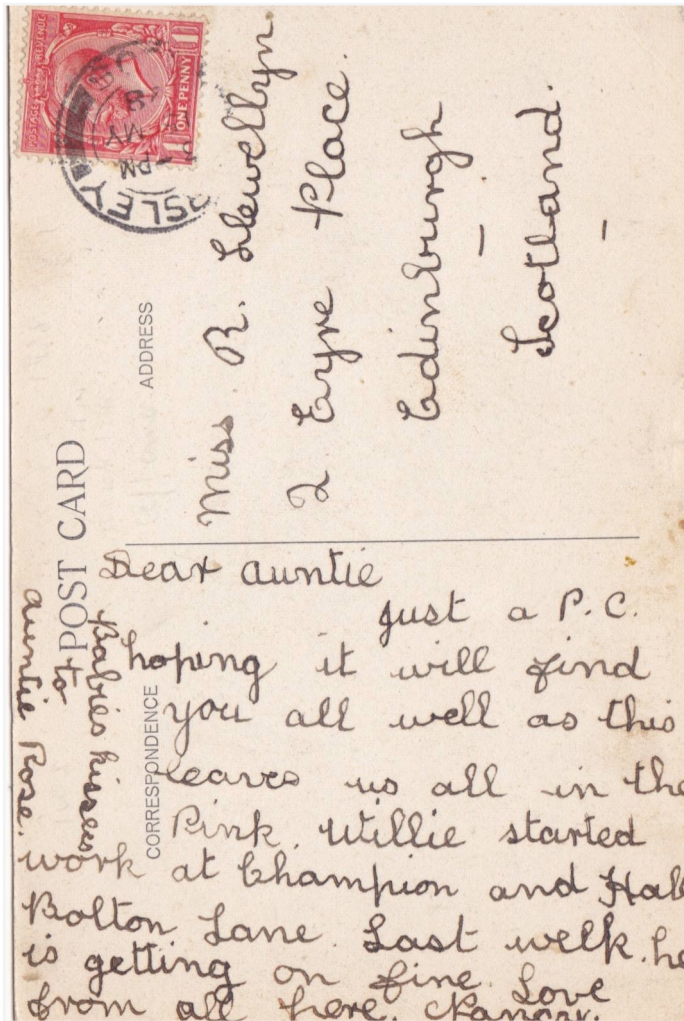 POSTAGE REVENUE
ONE PENNY
PM
MY
SLEY
POST CARD
ADDRESS
Miss R. Llewellyn
2 Eyre Place.
Edinburgh
Scotland.
CORRESPONDENCE
Dear Auntie
Just a P.C.
hoping it will find
you all well as this
leaves us all in the
Pink. Willie started
work at Champion and
Bolton Lane. Last welk. he
is getting on fine. Love
from all here. Nancy.
Babies kisses
to
Auntie Rose.